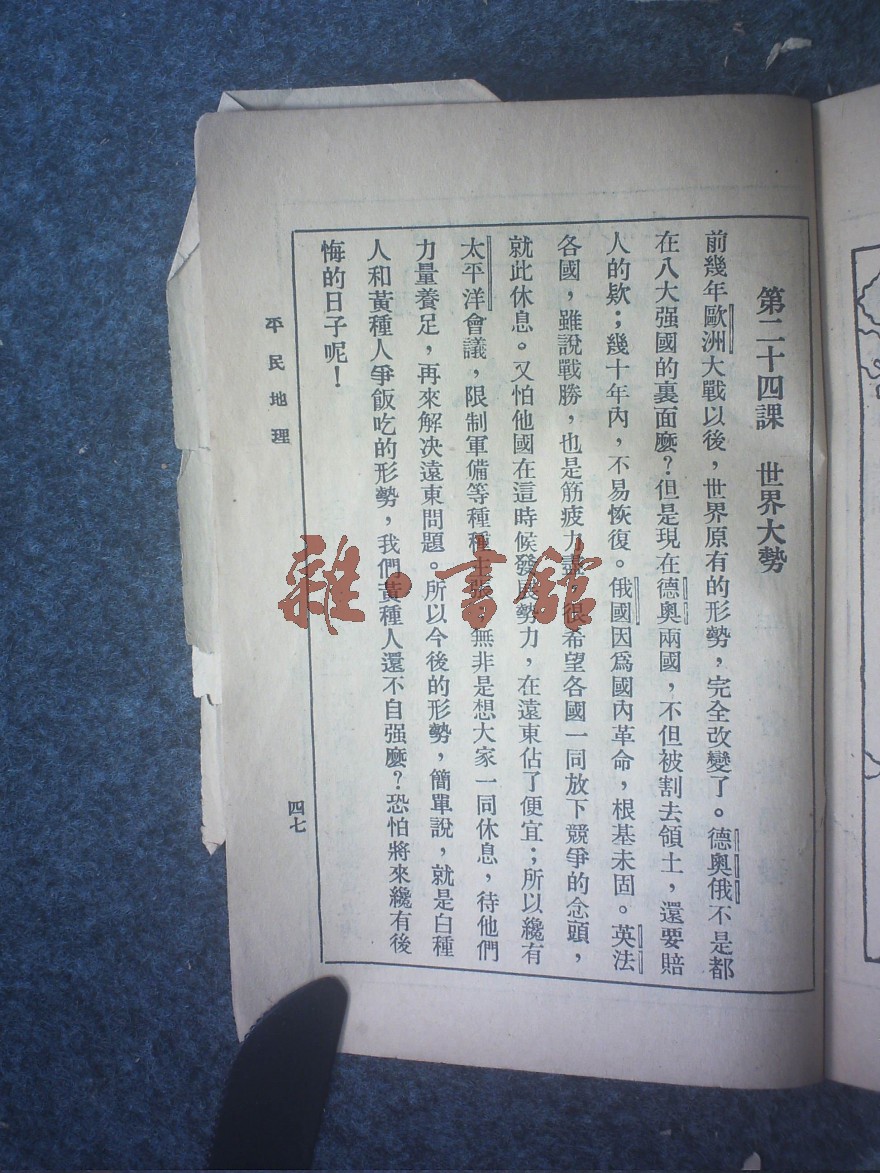 第二十四課　世界大勢
前幾年歐洲大戰以後，世界原有的形勢，完全改變了。德奧俄不是都
在八大强國的裏面麽？但是現在德奧兩國，不但被割去領土，還要賠
人的欵；幾十年內，不易恢復。俄國因爲國內革命，根基未固。英法
各國，雖說戰勝，也是筋疲力盡，很希望各國一同放下競爭的念頭，
就此休息。又怕他國在這時候發展勢力，在遠東佔了便宜；所以纔有
太平洋會議，限制軍備等種種主張，無非是想大家一同休息，待他們
力量養足，再來解决遠東問題。所以今後的形勢，簡單說，就是白種
人和黃種人爭飯吃的形勢，我們黃種人還不自强麽？恐怕將來纔有後
悔的日子呢！
平民地理
四七
雜·書館